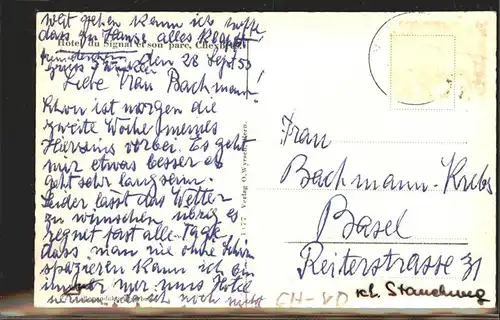 weit gehen kann ich nicht
dass zu Hause alles
Hôtel du Signal et son parc, Chexbres
den 28. Sept 53
Liebe Frau Bachmann!
Schon ist morgen die
zweite Woche meines
Hierseins vorbei. Es geht
mir etwas besser es
geht sehr langsam.
Leider lässt das Wetter
zu wünschen übrig es
regnet fast alle Tage
dass man nie ohne Schirm
spazieren kann ich bin
immer nur ums Hotel
noch nicht
1177 Verlag O. Wyrsch, Bern.
Frau
Bachmann-Krebs
Basel
Reiterstrasse 31
CH-VD
kl. Stauchung